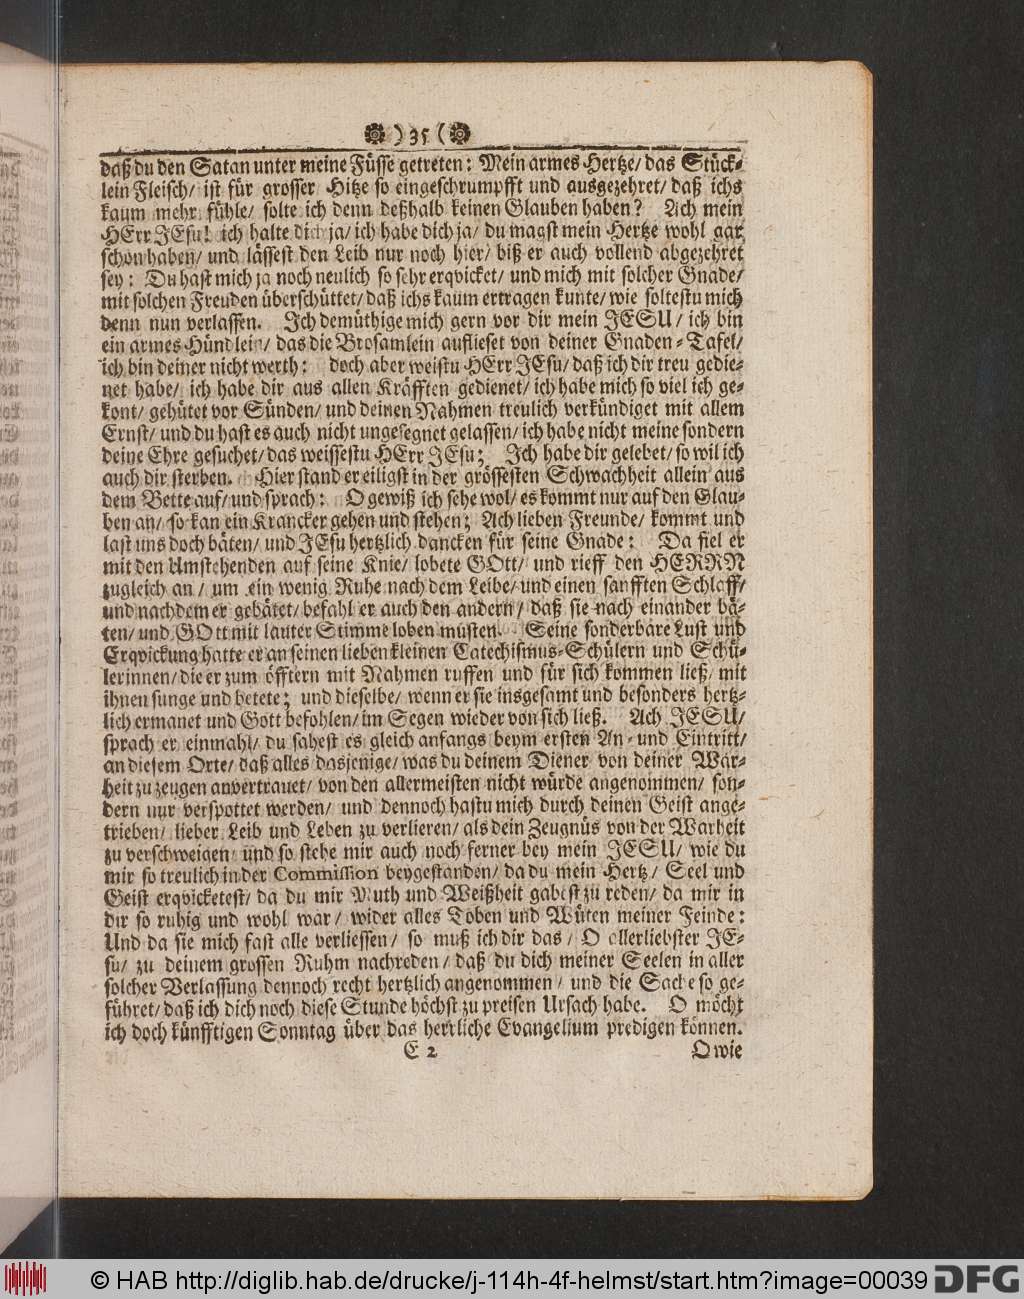 )35(
daß du den Satan unter meine Füsse getreten: Mein armes Hertze/ das Stück-
lein Fleisch/ ist für grosser Hitze so eingeschrumpfft und ausgezehret/ daß ichs
kaum mehr fühle/ solte ich denn deßhalb keinen Glauben haben? Ach mein
HErr JEsu! ich halte dich ja/ ich habe dich ja/ du magst mein Hertze wohl gar
schon haben/ und lässest den Leib nur noch hier/ biß er auch vollend abgezehret
sey: Du hast mich ja noch neulich so sehr erqvicket/ und mich mit solcher Gnade/
mit solchen Freuden überschüttet/ daß ichs kaum ertragen kunte/ wie soltestu mich
denn nun verlassen. Ich demüthige mich gern vor dir mein JESU/ ich bin
ein armes Hündlein/ das die Brosamlein auflieset von deiner Gnaden-Tafel/
ich bin deiner nicht werth: doch aber weistu HErr JEsu/ daß ich dir treu gedie-
net habe/ ich habe dir aus allen Kräfften gedienet/ ich habe mich so viel ich ge-
kont/ gehütet vor Sünden/ und deinen Nahmen treulich verkündiget mit allem
Ernst/ und du hast es auch nicht ungesegnet gelassen/ ich habe nicht meine sondern
deine Ehre gesuchet/ das weissestu HErr JEsu; Ich habe dir gelebet/ so wil ich
auch dir sterben. Hier stand er eiligst in der grössesten Schwachheit allein aus
dem Bette auf/ und sprach: O gewiß ich sehe wol/ es kommt nur auf den Glau-
ben an/ so kan ein Krancker gehen und stehen; Ach lieben Freunde/ kommt und
last uns doch bäten/ und JEsu hertzlich dancken für seine Gnade: Da fiel er
mit den Umstehenden auf seine Knie/ lobete GOtt/ und rieff den HERRN
zugleich an/ um ein wenig Ruhe nach dem Leibe/ und einen sanfften Schlaff/
und nachdem er gebätet/ befahl er auch den andern/ daß sie nach einander bä-
ten/ und GOtt mit lauter Stimme loben müsten. Seine sonderbare Lust und
Erqvickung hatte er an seinen lieben kleinen Catechismus-Schülern und Schü-
lerinnen/ die er zum öfftern mit Nahmen ruffen und für sich kommen ließ/ mit
ihnen sunge und betete; und dieselbe/ wenn er sie insgesamt und besonders hertz-
lich ermanet und Gott befohlen/ im Segen wieder von sich ließ. Ach JESU/
sprach er einmahl/ du sahest es gleich anfangs beym ersten An- und Eintritt/
an diesem Orte/ daß alles dasjenige/ was du deinem Diener von deiner War-
heit zu zeugen anvertrauet/ von den allermeisten nicht würde angenommen/ son-
dern nur verspottet werden/ und dennoch hastu mich durch deinen Geist ange-
trieben/ lieber Leib und Leben zu verlieren/ als dein Zeugnüs von der Warheit
zu verschweigen/ und so stehe mir auch noch ferner bey mein JESU/ wie du
mir so treulich in der Commission beygestanden/ da du mein Hertz/ Seel und
Geist erqvicketest/ da du mir Muth und Weißheit gabest zu reden/ da mir in
dir so ruhig und wohl war/ wider alles Toben und Wüten meiner Feinde:
Und da sie mich fast alle verliessen/ so muß ich dir das/ O allerliebster JE-
su/ zu deinem grossen Ruhm nachreden/ daß du dich meiner Seelen in aller
solcher Verlassung dennoch recht hertzlich angenommen/ und die Sache so ge-
führet/ daß ich dich noch diese Stunde höchst zu preisen Ursach habe. O möcht
ich doch künfftigen Sonntag über das herrliche Evangelium predigen können.
E 2 O wie
© HAB http://diglib.hab.de/drucke/j-114h-4f-helmst/start.htm?image=00039 DFG